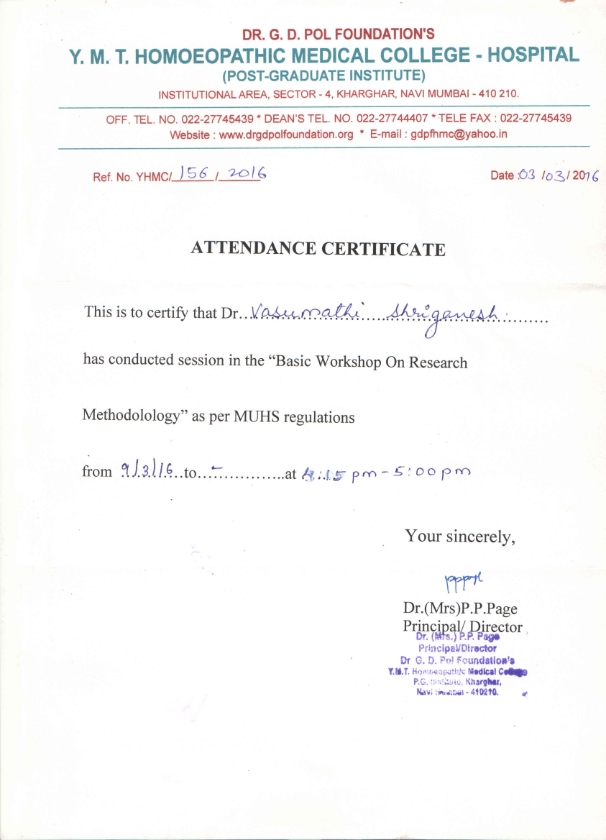 DR. G. D. POL FOUNDATION'S
Y. M. T. HOMOEOPATHIC MEDICAL COLLEGE - HOSPITAL
(POST-GRADUATE INSTITUTE)
INSTITUTIONAL AREA, SECTOR - 4, KHARGHAR, NAVI MUMBAI - 410 210.
OFF. TEL. NO. 022-27745439 * DEAN'S TEL. NO. 022-27744407 * TELE FAX : 022-27745439
Website : www.drgdpolfoundation.org * E-mail : gdpfhmc@yahoo.in
Ref. No. YHMC/ 156 / 2016 Date :03 /03/ 2016
ATTENDANCE CERTIFICATE
This is to certify that Dr. Vasumathi Shriganesh.
has conducted session in the “Basic Workshop On Research
Methodolology” as per MUHS regulations
from 9/3/16 to - at 4:15 pm - 5:00 pm
Your sincerely,
Dr.(Mrs)P.P.Page
Principal/ Director
Dr. (Mrs.) P.P. Page
Principal/Director
Dr G. D. Pol Foundation's
Y.M.T. Homoeopathic Medical College
P.G. Institute, Kharghar,
Navi Mumbai - 410210.